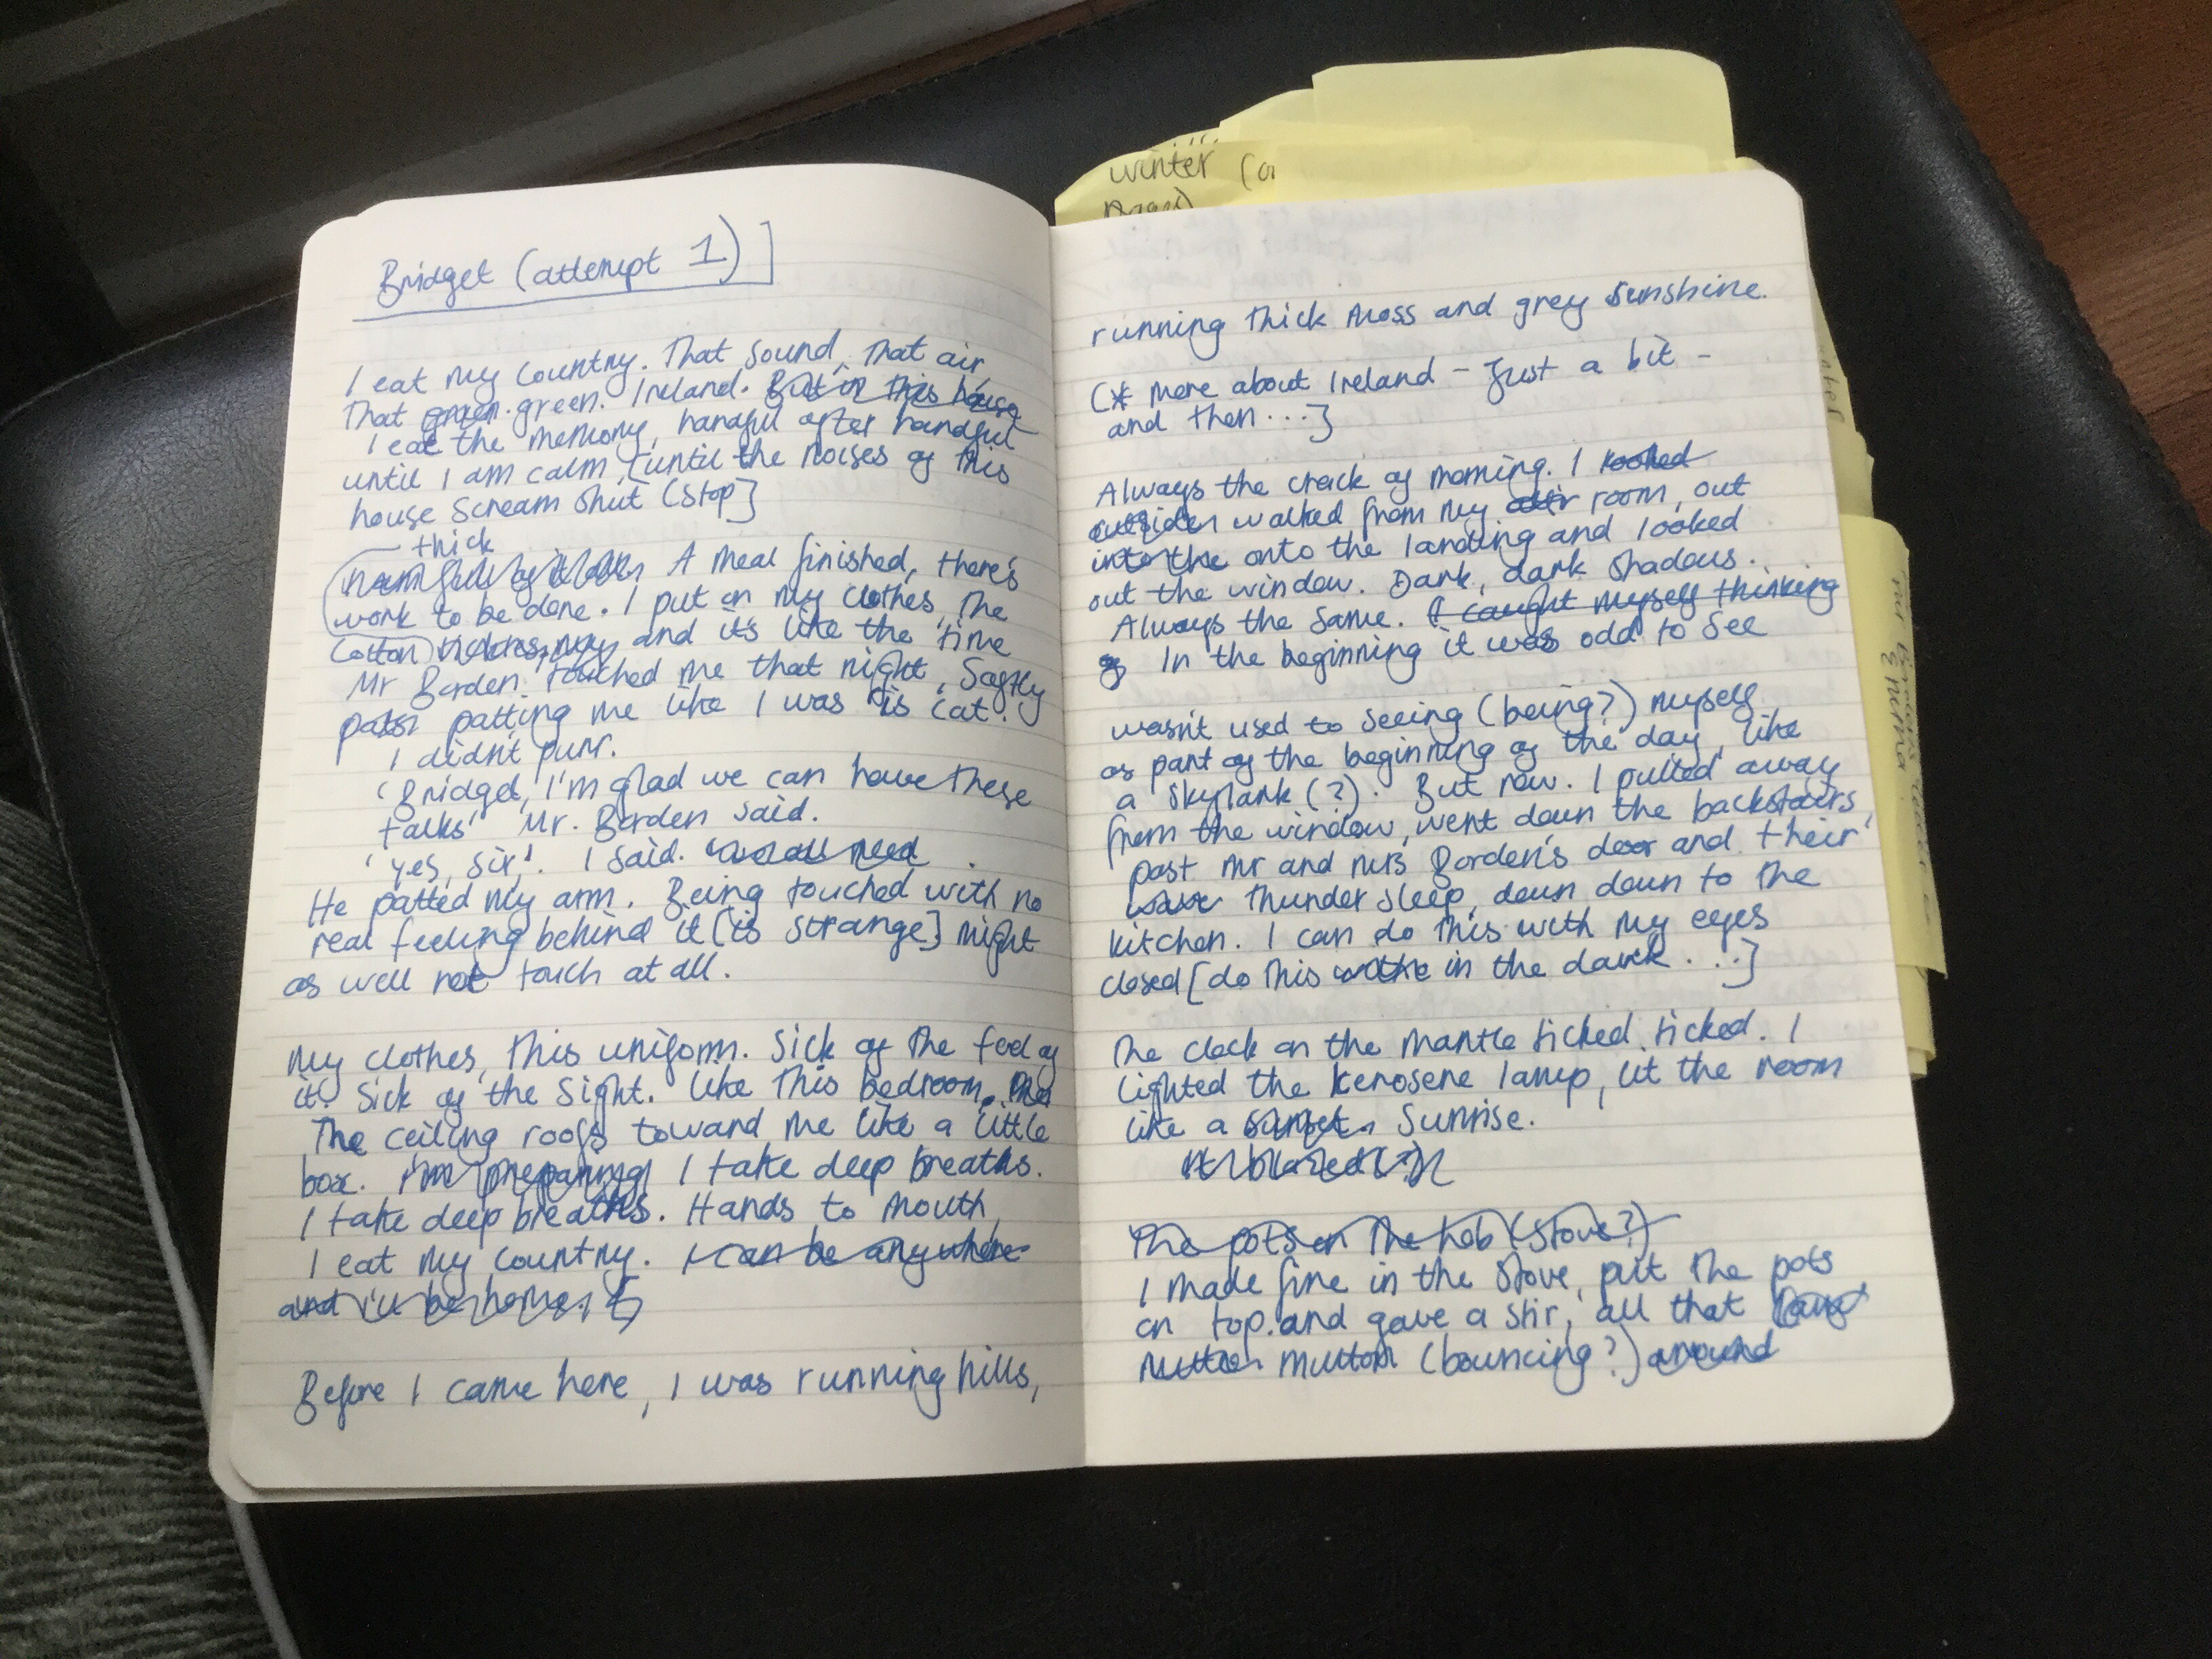 Bridget (attempt 1)]
I eat my country. That sound, that air
That green. green. Ireland. But in this house
I eat the memory, handful after handful
until I am calm, [until the noises of this
house scream shut (stop]
thick
A meal finished, there's
work to be done. I put on my clothes, the
cotton and it's like the time
Mr Borden touched me that night, softly
patting me like I was his cat.
I didn't purr.
'Bridget, I'm glad we can have these
talks' Mr. Borden said.
'yes, sir,'. I said.
He patted my arm. Being touched with no
real feeling behind it [is strange] might
as well not touch at all.
My clothes, this uniform. Sick of the feel of
it. Sick of the sight. Like this bedroom. The
The ceiling roofs toward me like a little
box. I'm preparing I take deep breaths.
I take deep breaths. Hands to mouth,
I eat my country. I can be anywhere
and I'll be home.
Before I came here, I was running hills,
winter (or
running thick moss and grey sunshine.
(* more about Ireland - Just a bit -
and then...]
Always the crack of morning. I looked
outside walked from my room, out
into the onto the landing and looked
out the window. Dark, dark shadows.
Always the same. I caught myself thinking
of In the beginning it was odd to see
wasn't used to seeing (being?) myself
as part of the beginning of the day, like
a skylark (?). But now. I pulled away
from the window, went down the backstairs,
past Mr and Mrs Borden's door and their
thunder sleep, down down to the
kitchen. I can do this with my eyes
closed [do this in the dark...]
The clock on the mantle ticked, ticked. I
lighted the kerosene lamp, lit the room
like a sunset. Sunrise.
It blazed (?)
The pots on the hob (stove?)
I made fire in the stove, put the pots
on top. and gave a stir, all that
mutton (bouncing?) around